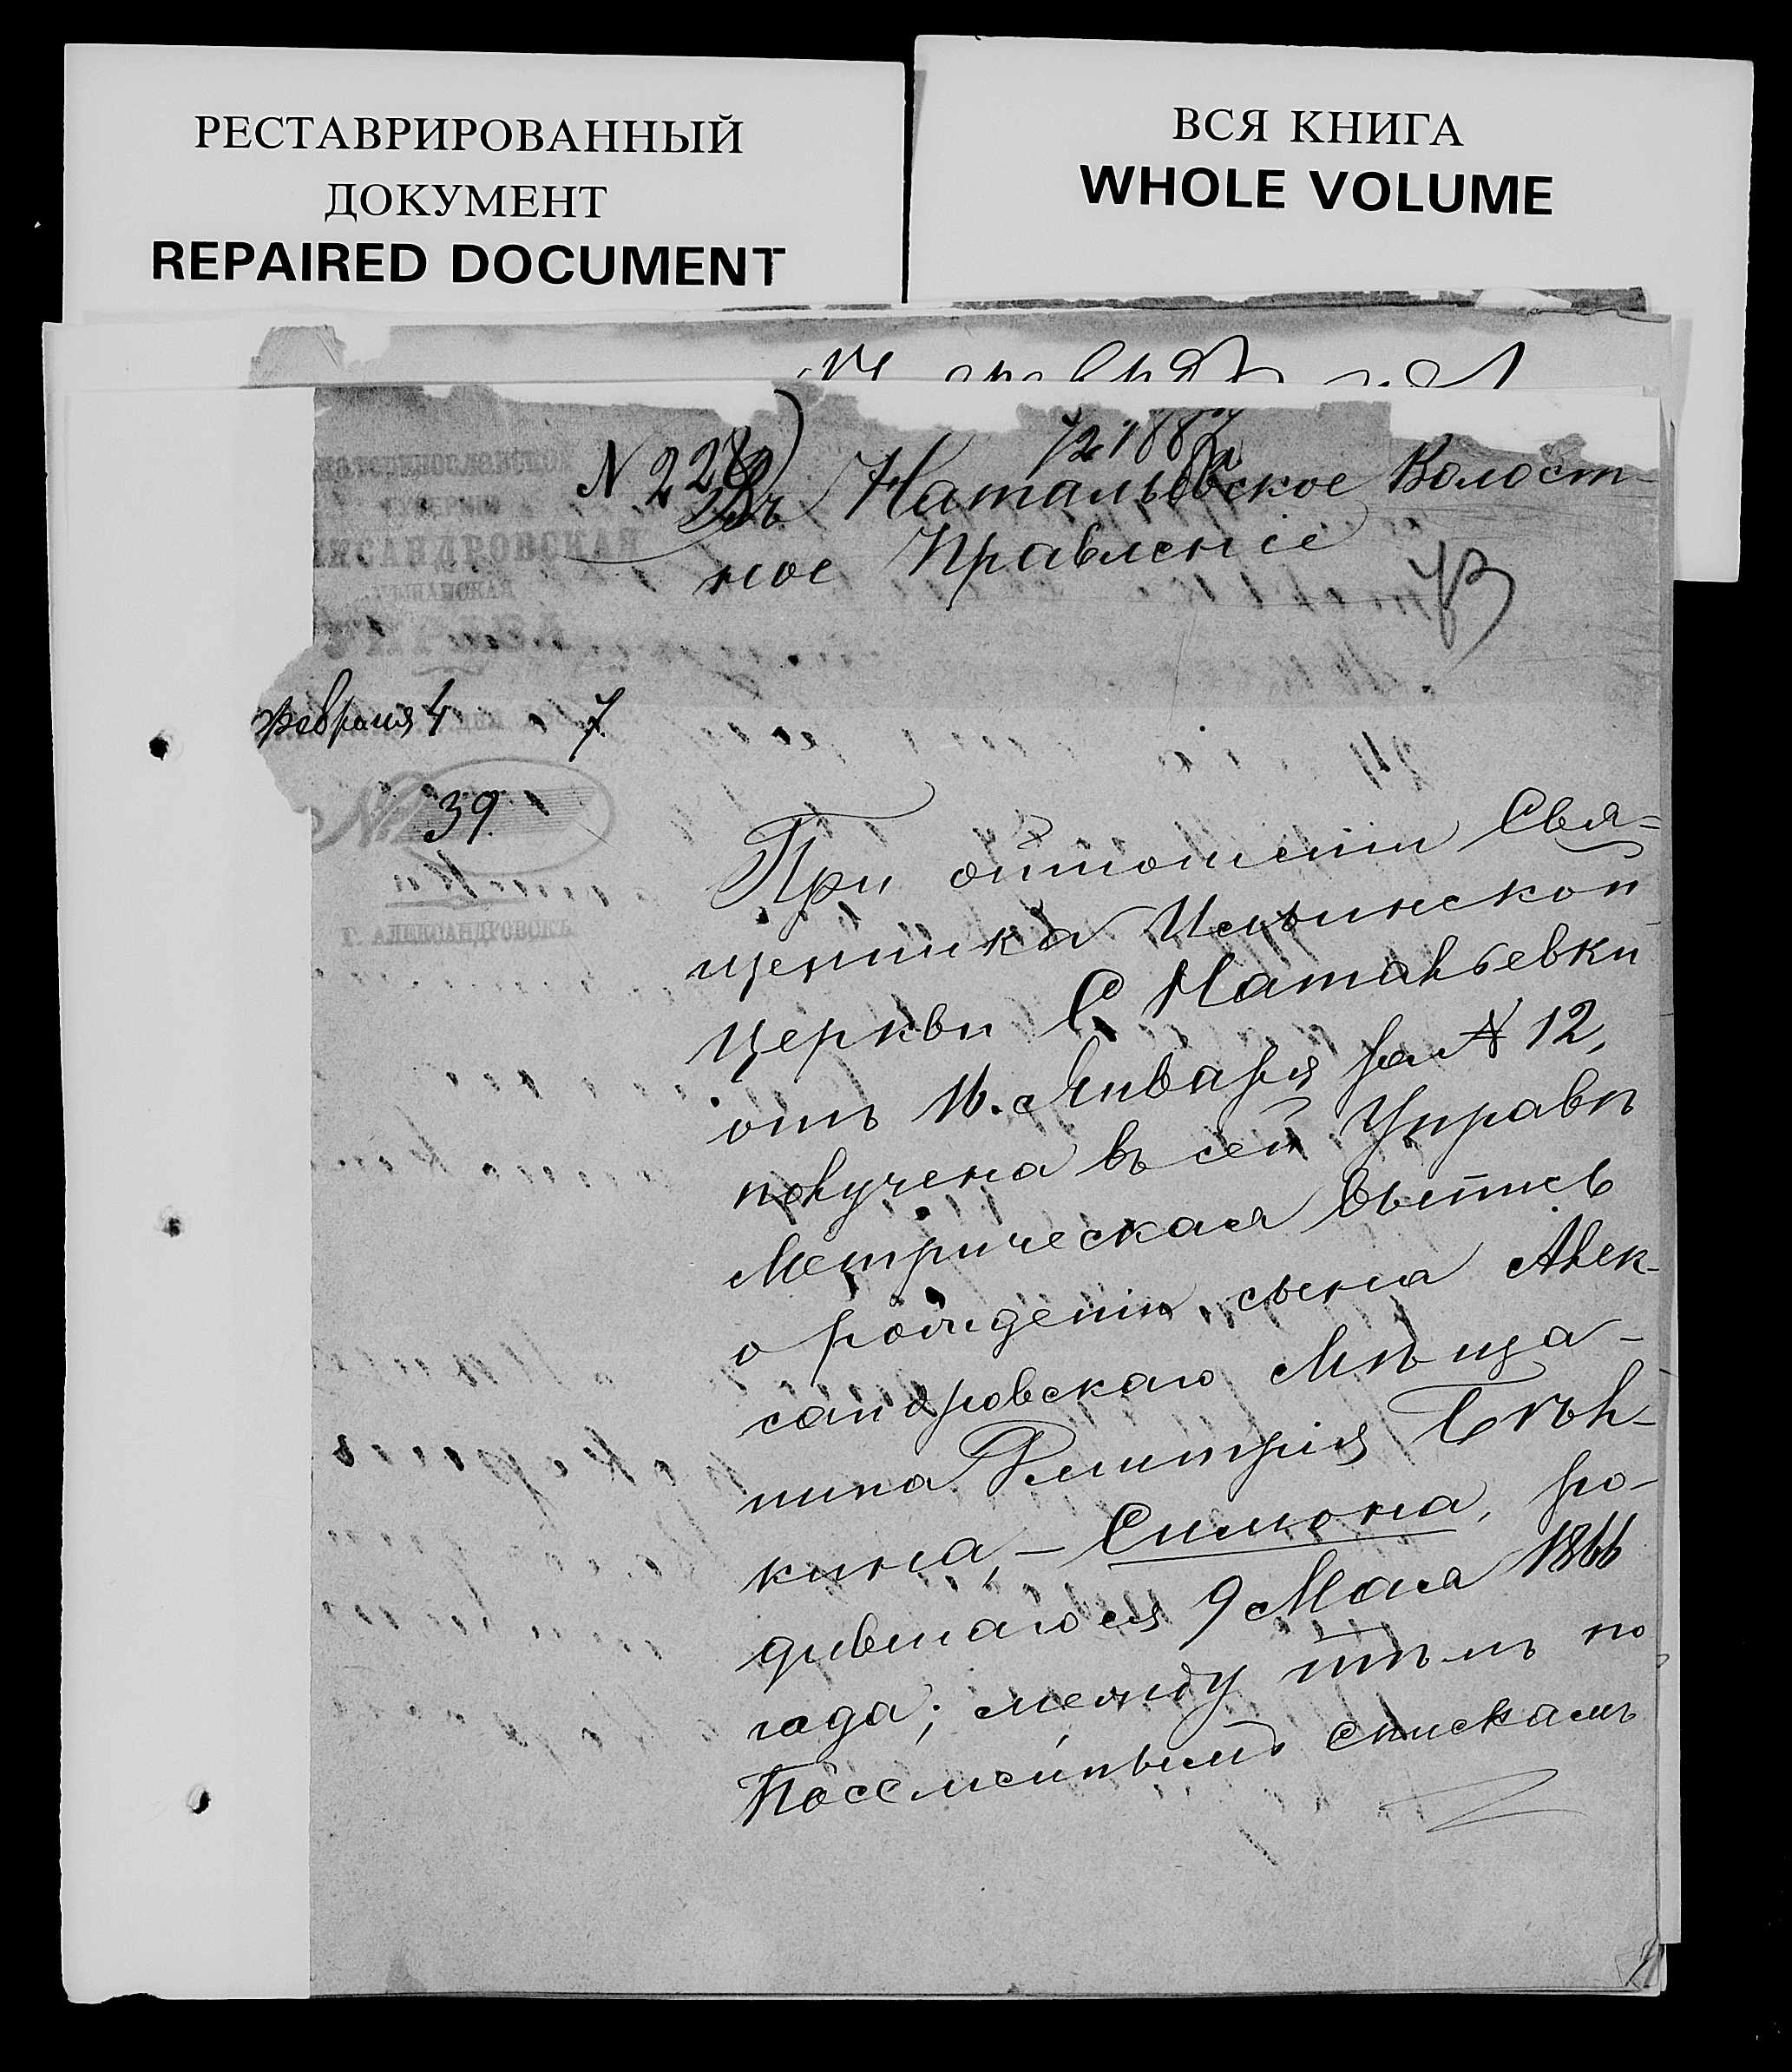 РЕСТАВРИРОВАННЫЙ
ДОКУМЕНТ
REPAIRED DOCUMENT
ВСЯ КНИГА
WHOLE VOLUME
N 228
Въ Натальевское Волост-
ное Правленіе
февраля 4 7
№ 39
Г. АЛЕКСАНДРОВСКЪ
При отношеніи Свя-
щенника Ильинской
церкви С. Натальевки
отъ 16. Января за № 12,
получена въ сей Управѣ
Метрическая выпись
о рожденіи сына Алек-
сандровскаго Мѣща-
нина Дмитрія Бѣл-
кина, - Симона, ро-
дившагося 9 Мая 1866
года; между тѣмъ по
Посемейнымъ спискамъ